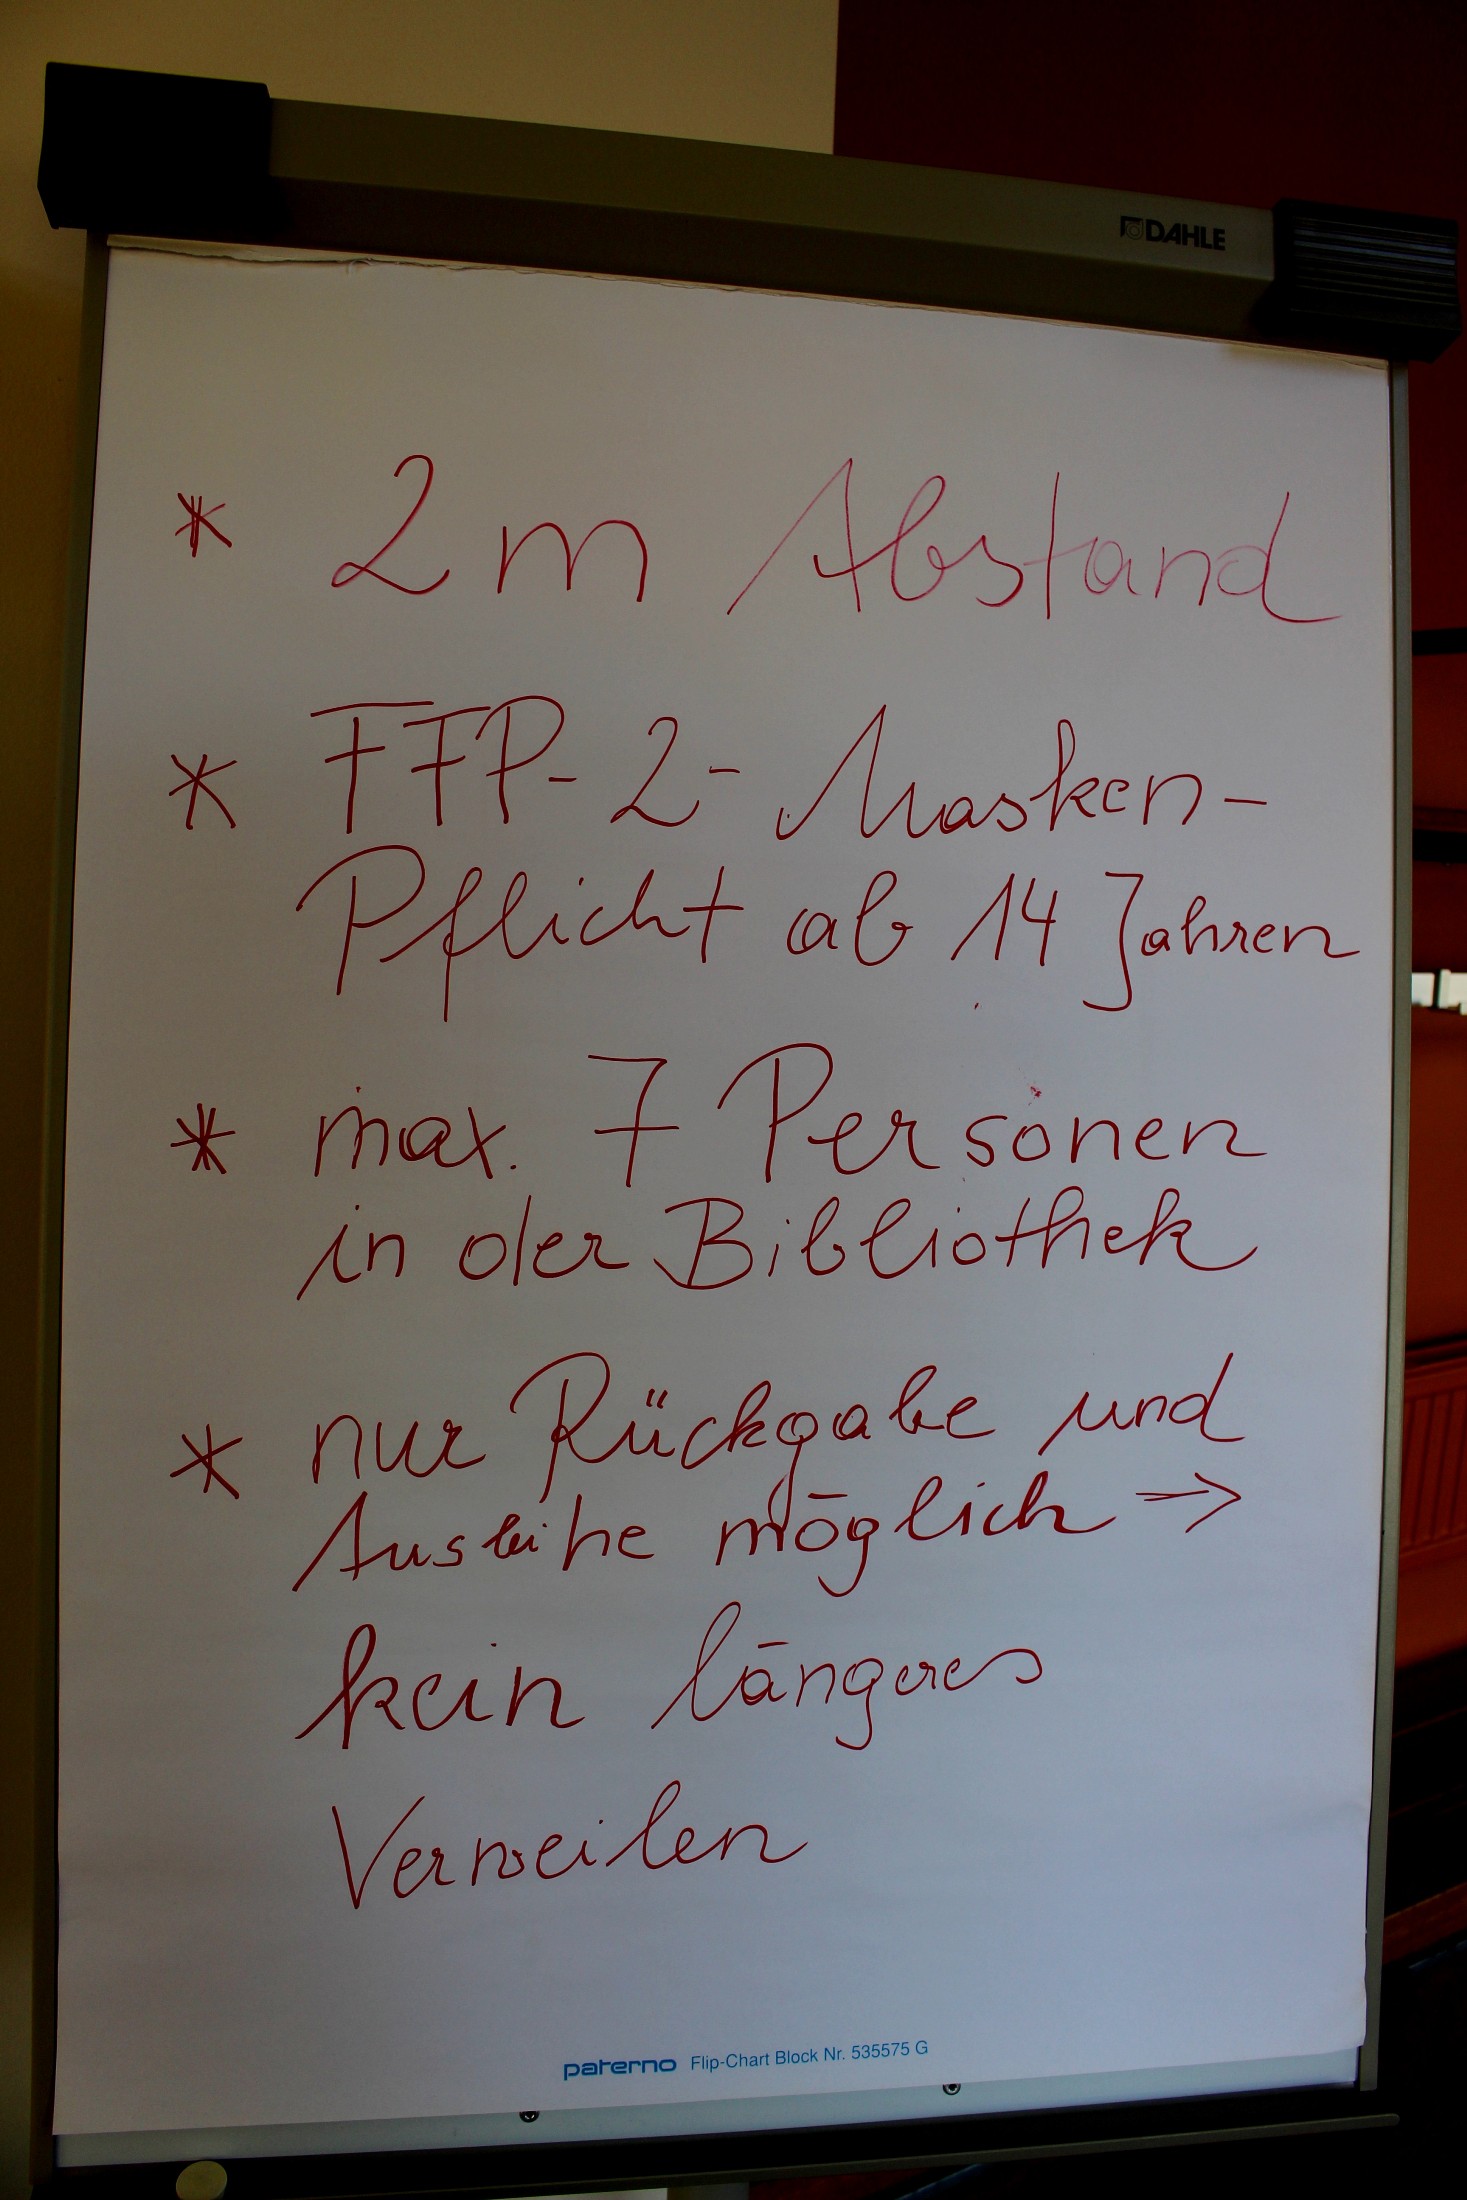 DAHLE
* 2m Abstand
* FFP-2-Masken-
Pflicht ab 14 Jahren
* max. 7 Personen
in der Bibliothek
* nur Rückgabe und
Ausleihe möglich →
kein längeres
Verweilen
paterno Flip-Chart Block Nr. 535575 G